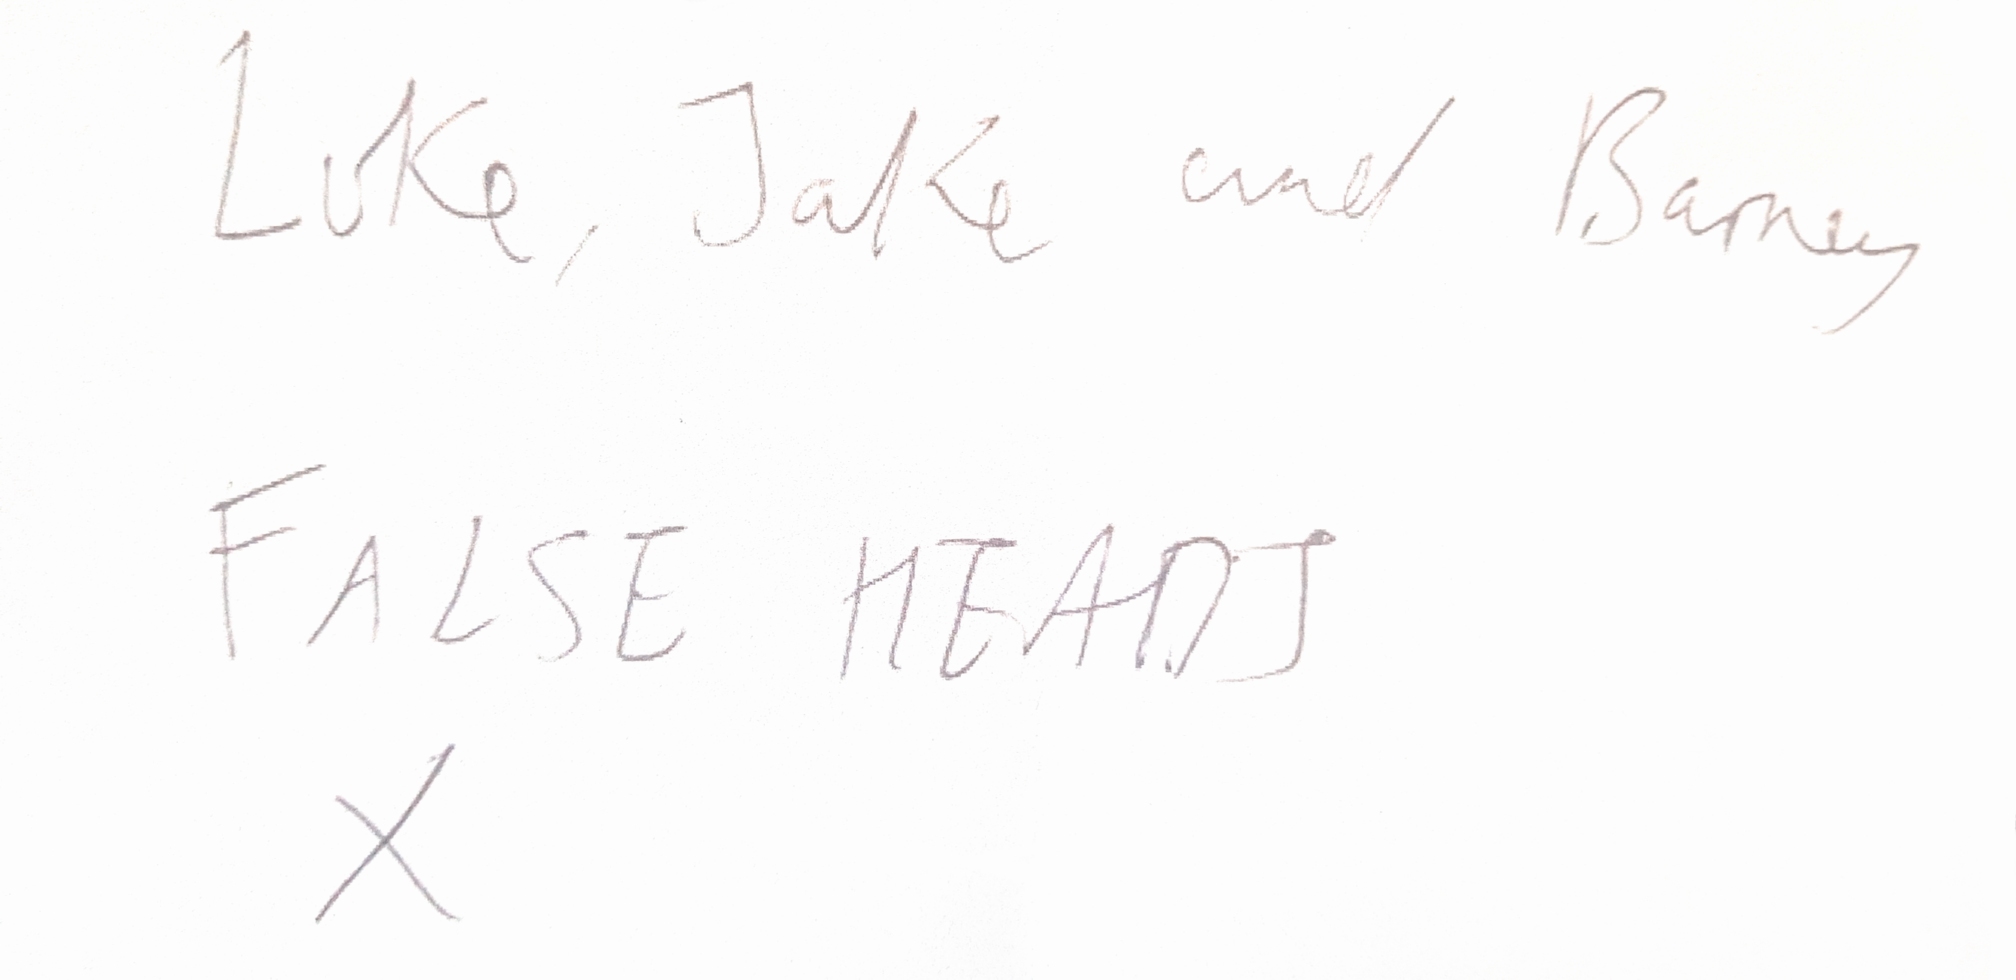 Luke, Jake and Barney
FALSE HEADS
X